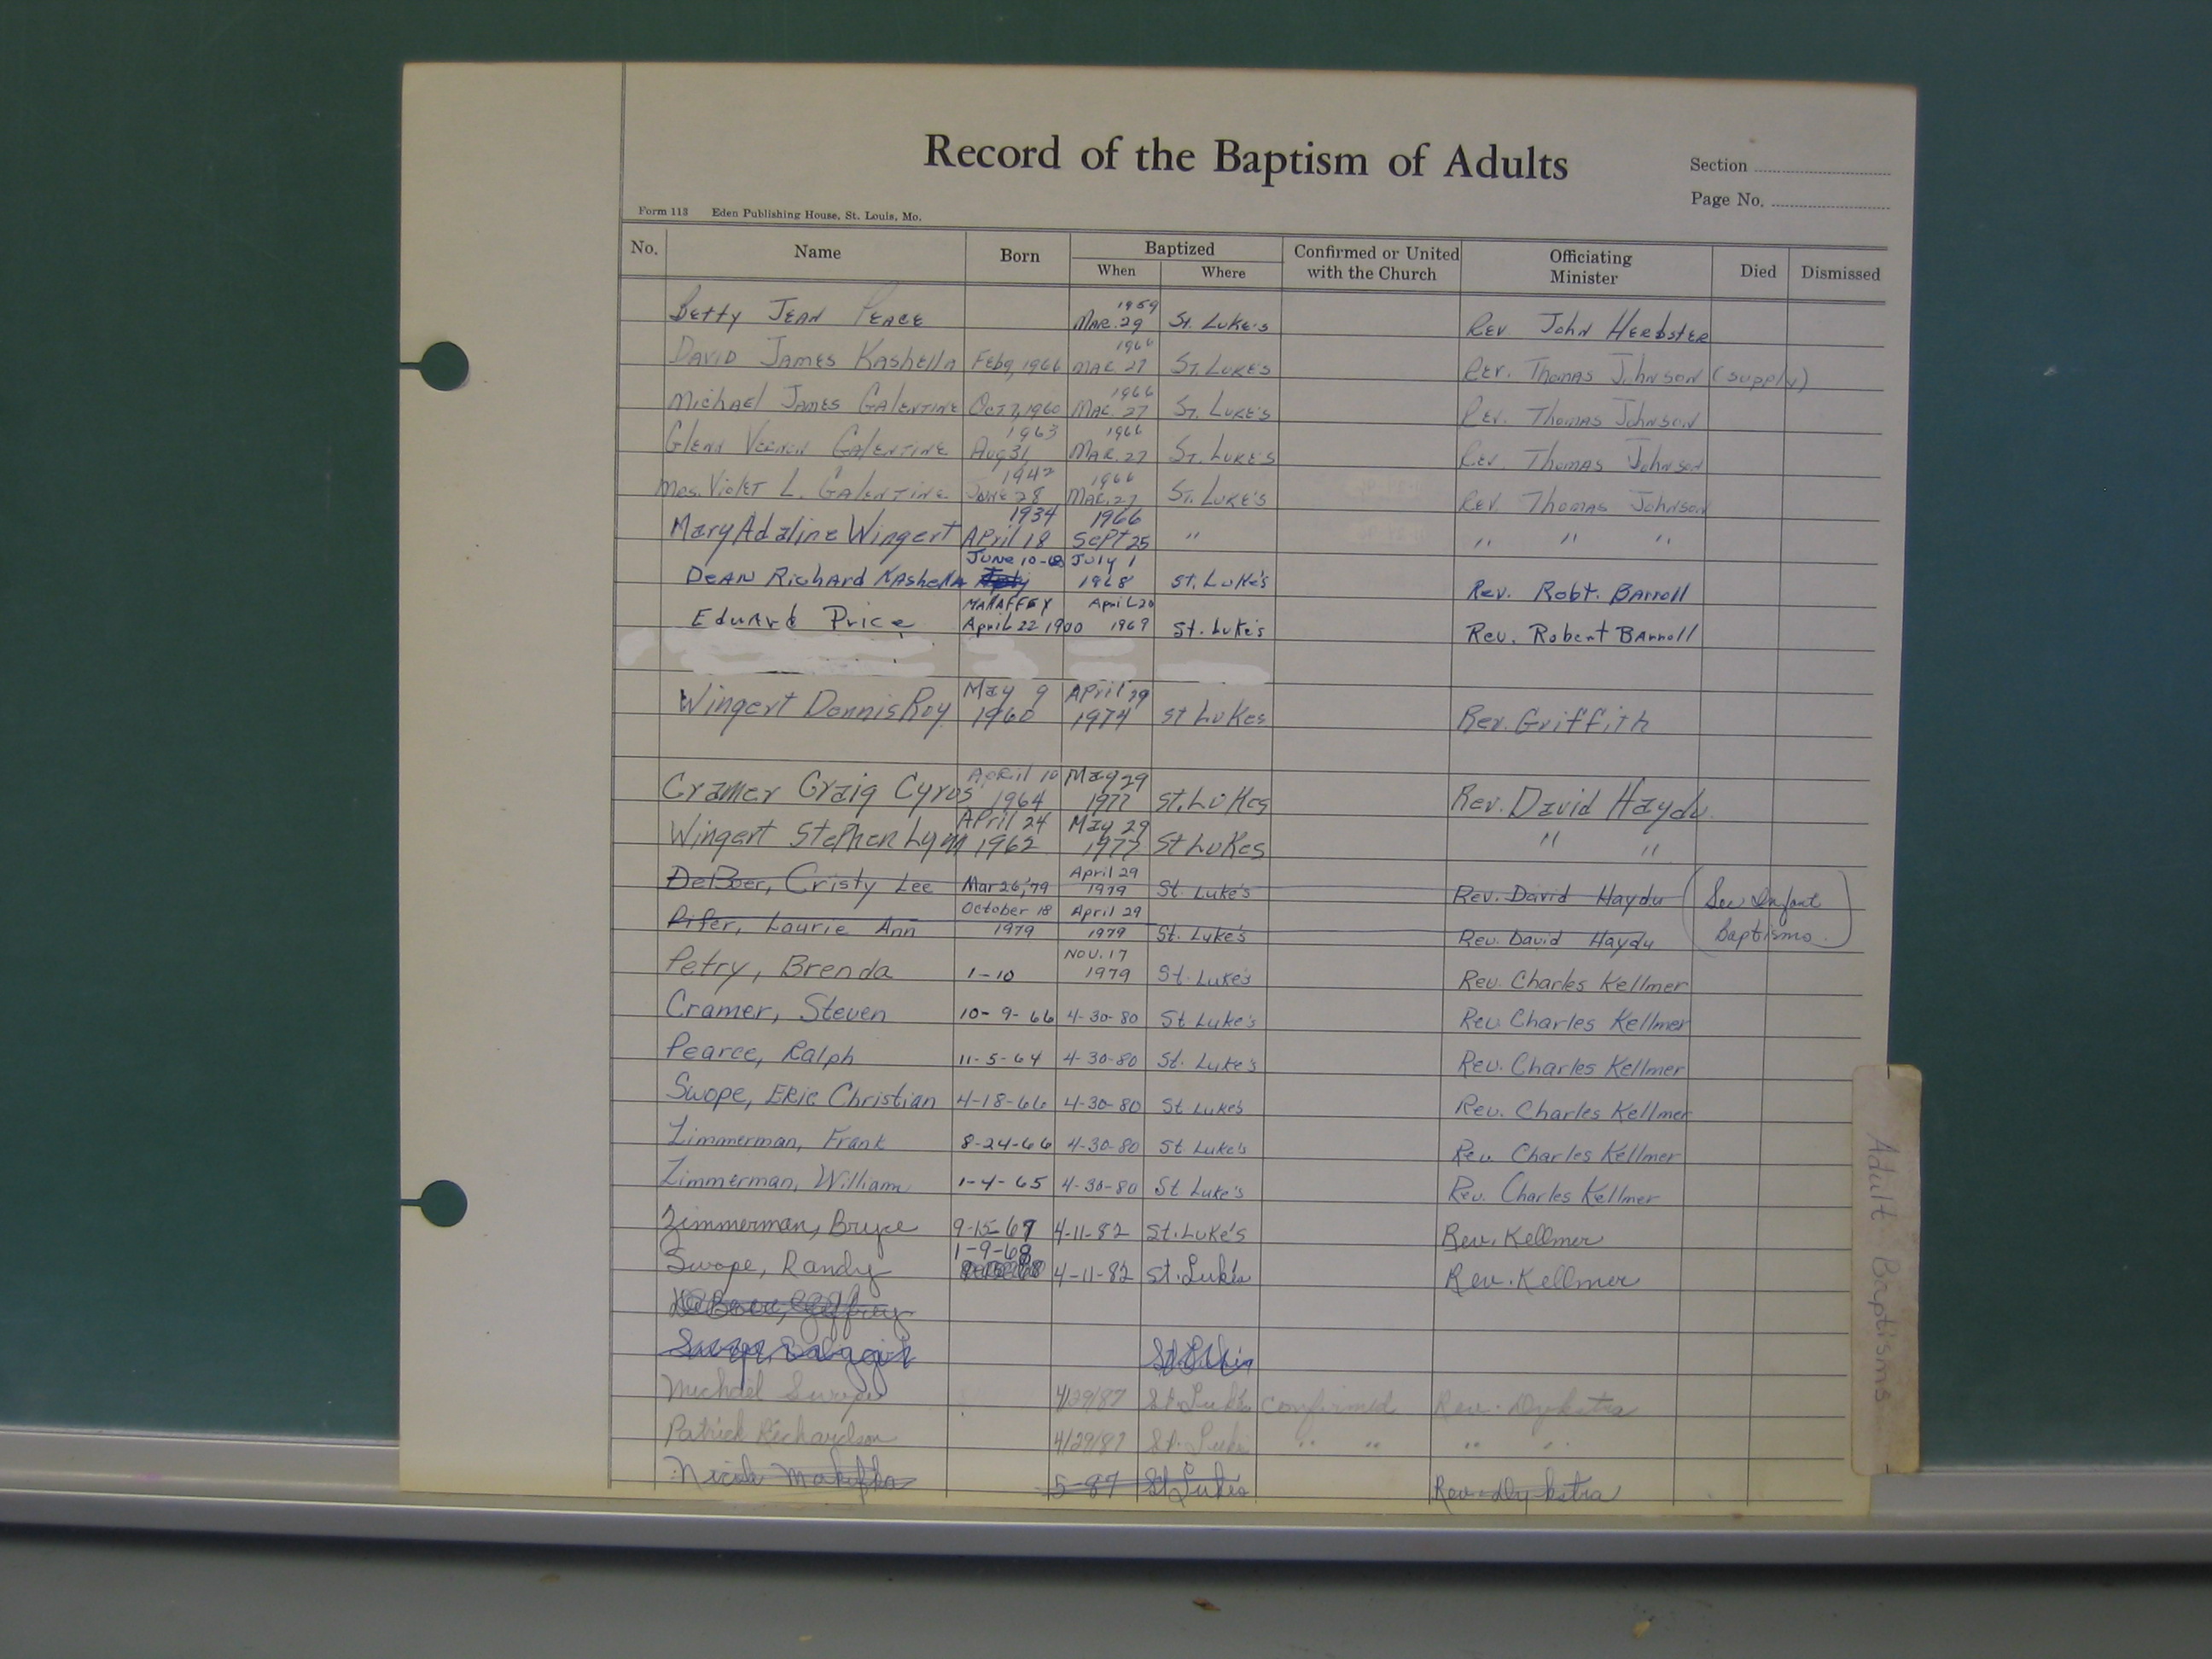 Record of the Baptism of Adults
Section
Page No.
Form 113 Eden Publishing House, St. Louis, Mo.
No. Name Born Baptized Confirmed or United with the Church Officiating Minister Died Dismissed
When Where
1959
Betty Jean Peace Mar. 29 St. Luke's Rev John Herbster
1966
David James Kashella Feb 9, 1966 Mar. 27 St. Luke's Rev. Thomas Johnson (supply)
1966
Michael James Galentine Oct 7, 1960 Mar. 27 St. Luke's Rev. Thomas Johnson
1963 1966
Glenn Vernon Galentine Aug 31, Mar. 27 St. Luke's Rev. Thomas Johnson
1942 1966
Mrs. Violet L. Galentine June 28 Mar. 27 St. Luke's Rev. Thomas Johnson
1934 1966
Mary Adaline Wingert April 18 Sept 25 " " " "
June 10-68 July 1
Dean Richard Kashella 1968 St. Luke's Rev. Robt. Barroll
Mahaffey April 20
Edward Price April 22 1900 1969 St. Luke's Rev. Robert Barroll
May 9 April 29
Wingert Dennis Roy 1960 1974 St Lukes Rev. Griffith
April 10 May 29
Cramer Craig Cyrus 1964 1977 St. Lukes Rev. David Haydu
April 24 May 29
Wingert Stephen Lynn 1962 1977 St Lukes " "
April 29
DeBoer, Cristy Lee Mar 26, '79 1979 St. Luke's Rev. David Haydu (See Infant
October 18 April 29
Pifer, Laurie Ann 1979 1979 St. Luke's Rev. David Haydu Baptisms.)
Nov. 17
Petry, Brenda 1-10 1979 St. Luke's Rev. Charles Kellmer
Cramer, Steven 10-9-66 4-30-80 St Luke's Rev. Charles Kellmer
Pearce, Ralph 11-5-64 4-30-80 St. Luke's Rev. Charles Kellmer
Swope, Eric Christian 4-18-66 4-30-80 St Luke's Rev. Charles Kellmer
Zimmerman, Frank 8-24-66 4-30-80 St Luke's Rev. Charles Kellmer
Zimmerman, William 1-4-65 4-30-80 St Luke's Rev. Charles Kellmer
Zimmerman, Bryce 9-15-67 4-11-82 St. Luke's Rev. Kellmer
1-9-68
Swope, Randy 4-11-82 St. Luke's Rev. Kellmer
DeBoer, Jeffrey
St Lukes
Michael Swope 4/29/87 St. Luke's Confirmed Rev. Dykstra
Patrick Richardson 4/29/87 St. Lukes " " " "
Nicole 5-87 St Lukes Rev. Dykstra
Adult Baptisms